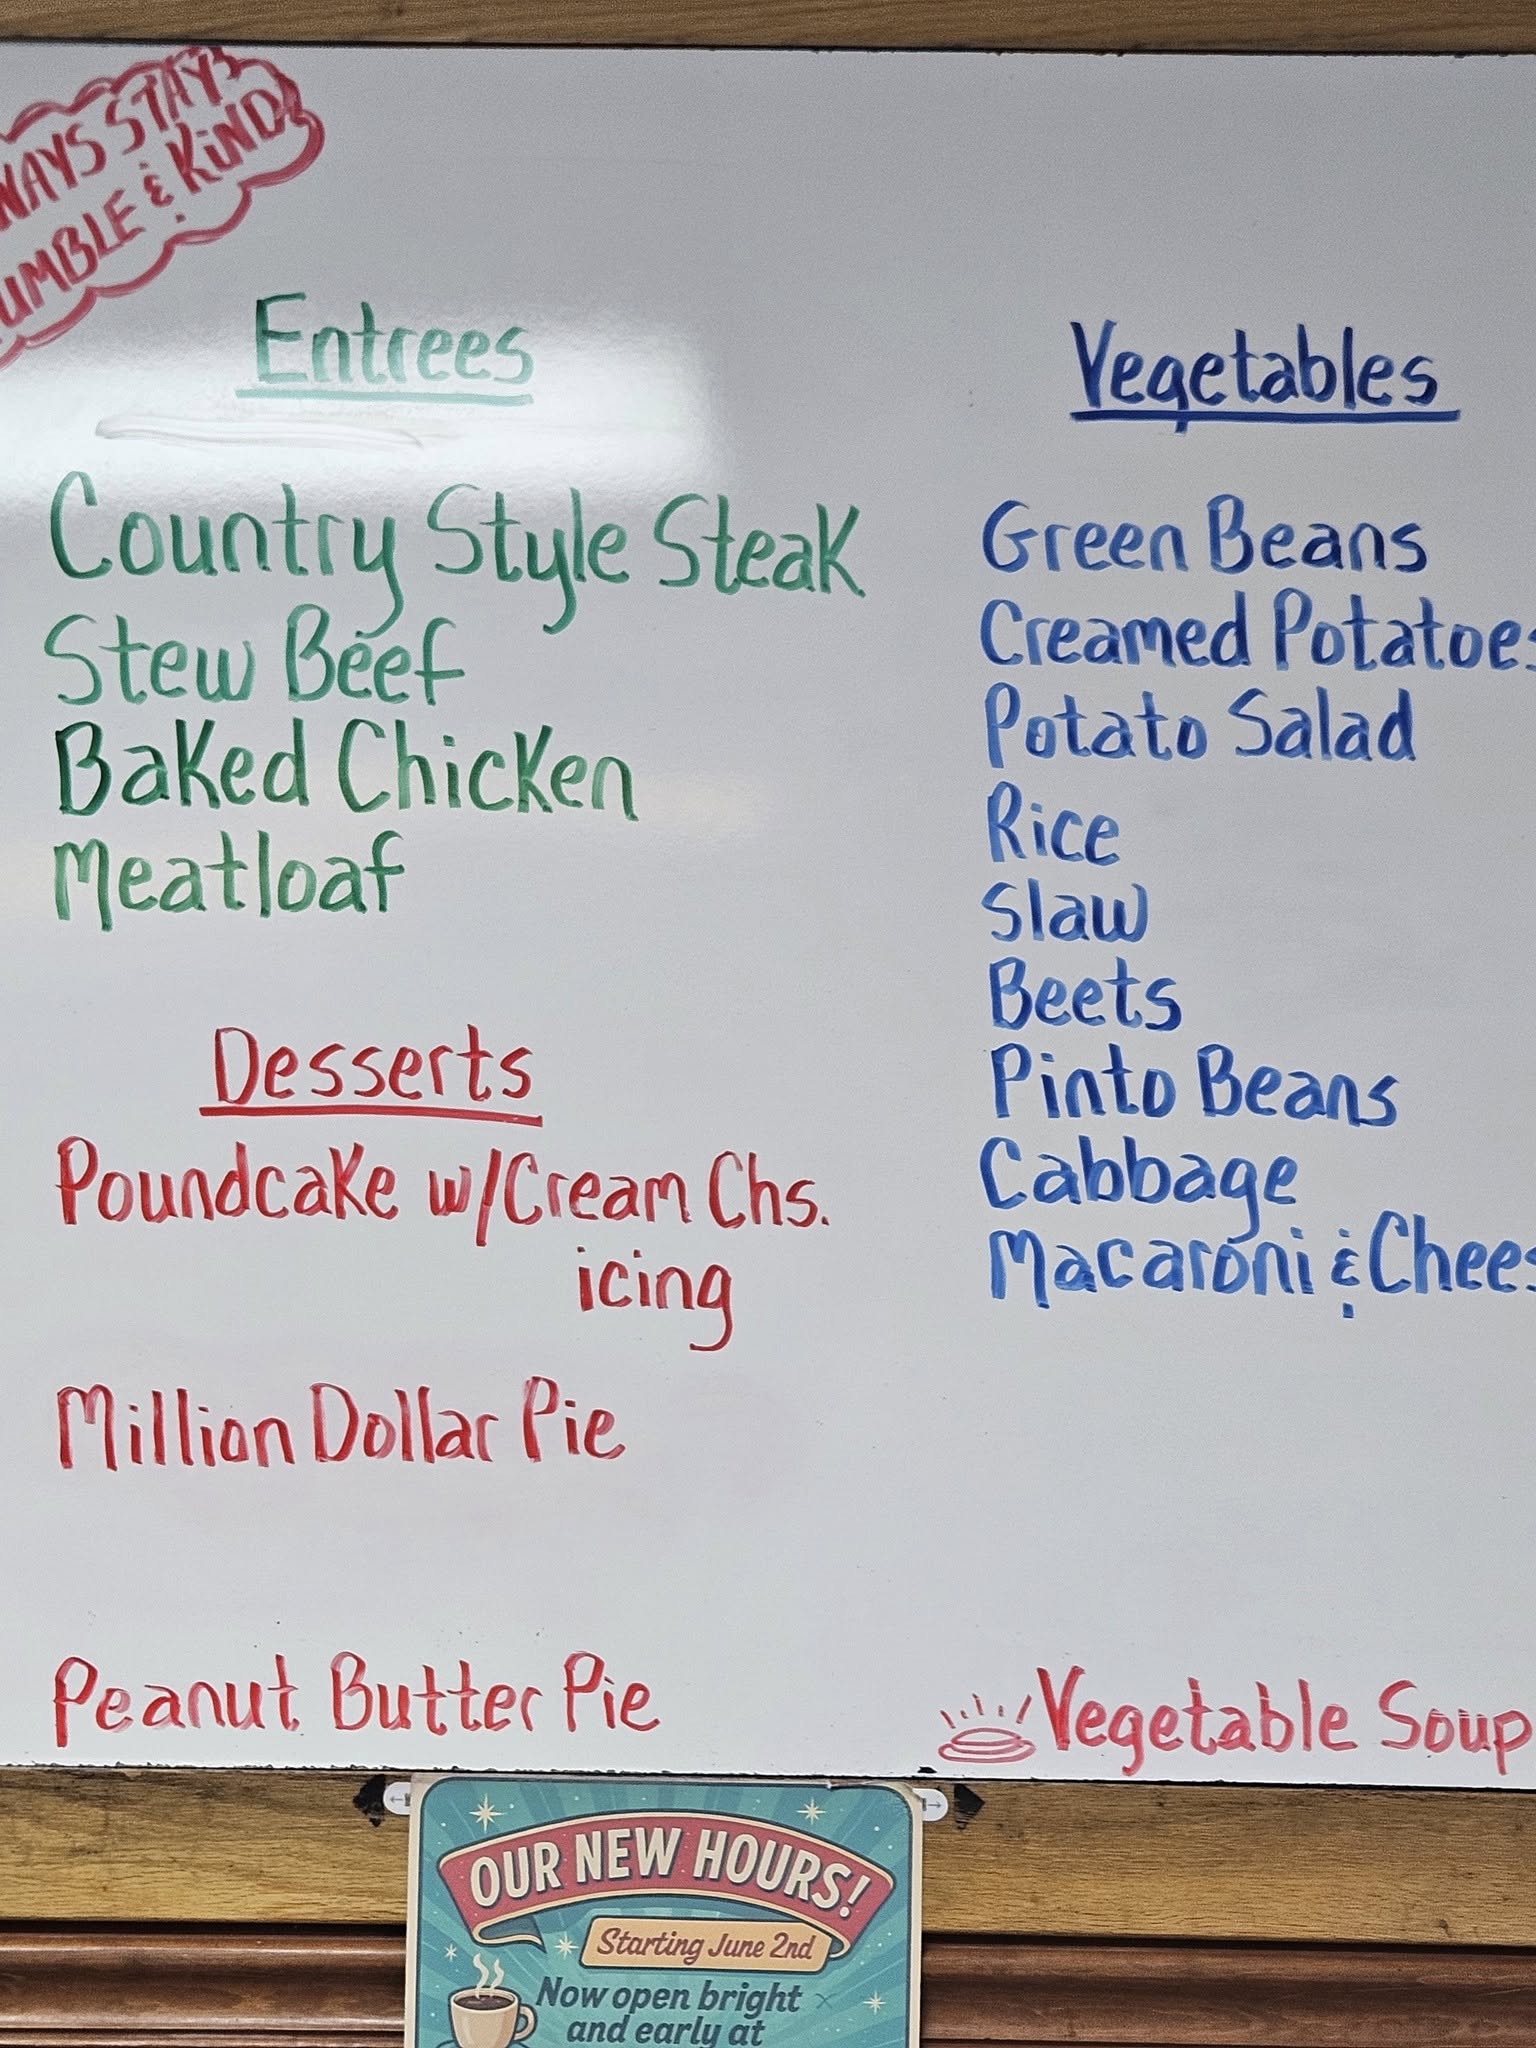 WAYS STAY
UMBLE & KiND
Entrees
Country Style Steak
Stew Beef
Baked Chicken
Meatloaf
Desserts
Poundcake w/Cream Chs.
icing
Million Dollar Pie
Peanut Butter Pie
Vegetables
Green Beans
Creamed Potatoes
Potato Salad
Rice
Slaw
Beets
Pinto Beans
Cabbage
Macaroni & Chees
Vegetable Soup
OUR NEW HOURS!
Starting June 2nd
Now open bright
and early at